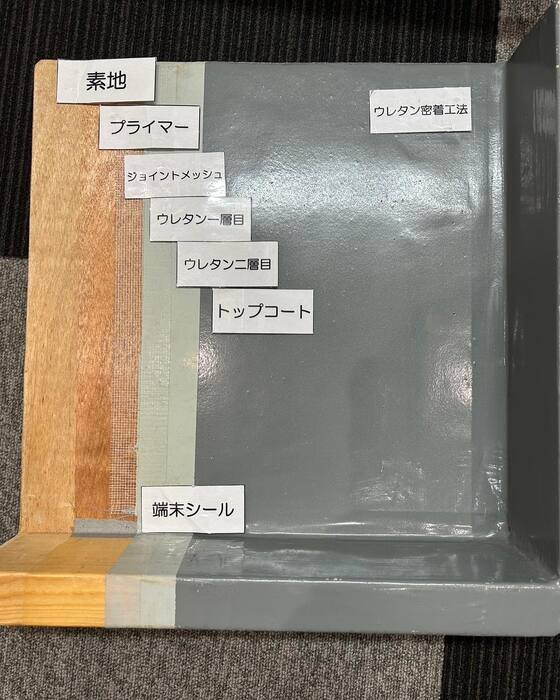 素地
ウレタン密着工法
プライマー
ジョイントメッシュ
ウレタン一層目
ウレタン二層目
トップコート
端末シール